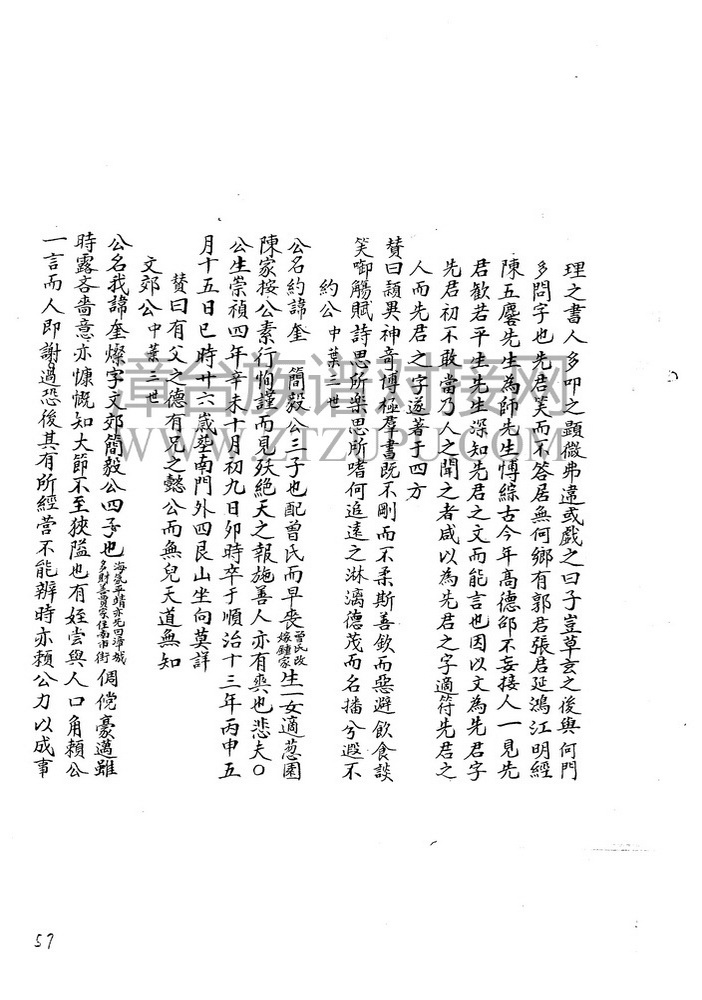 理之書人多叩之顯微弗違或戲之曰子豈草玄之後與何門
多問字也先君笑而不答居無何鄉有郭君張君延鴻江明經
陳五鏖先生為師先生愽綜古今年高德卲不妄接人一見先
君歡若平生先生深知先君之文而能言也因以文為先君字
先君初不敢當乃人之聞之者咸以為先君之字適符先君之
人而先君之字遂著于四方
贊曰頴異神奇博極羣書既不剛而不柔斯善欽而惡避飲食談
笑啣觴賦詩思所樂思所嗜何追遠之淋漓德茂而名播兮遐不
約公中葉三世
公名約諱奎 簡毅公三子也配曾氏而早喪曾氏改嫁鍾家生一女適葱園
陳家按公素行恂謹而見殀絕天之報施善人亦有爽也悲夫○
公生崇禎四年辛未十月初九日卯時卒于順治十三年丙申五
月十五日巳時廿六歲塟南門外四艮山坐向莫詳
贊曰有父之德有兄之懿公而無兒天道無知
文郊公中葉三世
公名我諱奎燦字文郊簡毅公四子也海氛平靖亦先回漳城多財善賈家住南市街倜儻豪邁雖
時露吝嗇意亦慷慨知大節不至狹隘也有姪尝與人口角賴公
一言而人即謝過恐後其有所經营不能辦時亦賴公力以成事
章台族谱对接网
WWW.ZTZUPU.COM
57